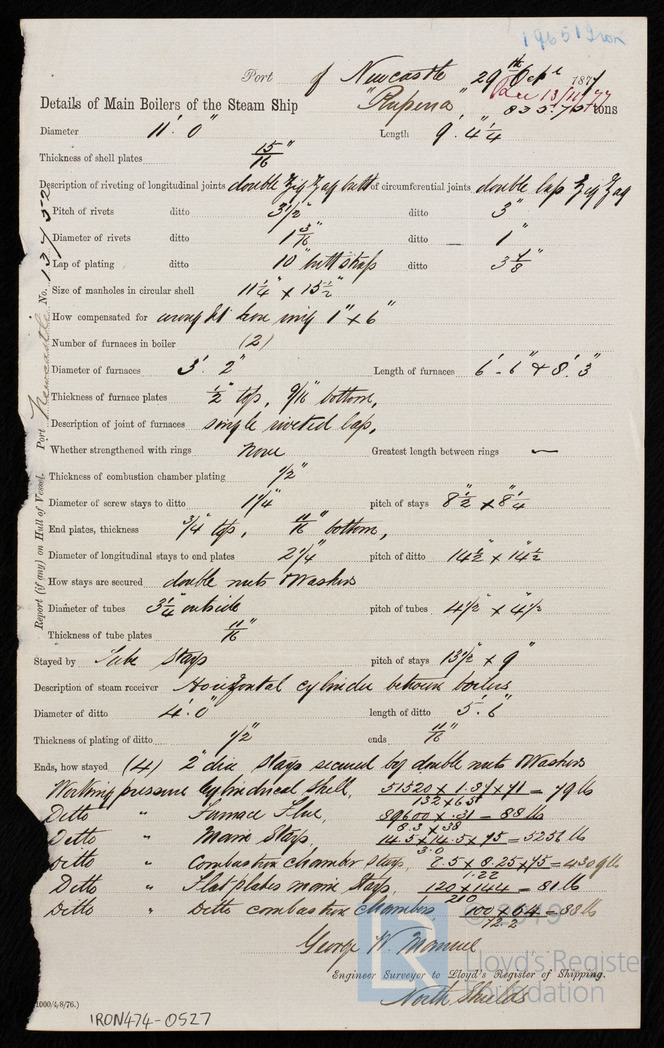 19651 Iron
Port of Newcastle 29th Sept 1877
Rec 13/11/77
Details of Main Boilers of the Steam Ship "Rupena" 835.75 tons
Diameter 11'. 0" Length 9'. 4 1/4
Thickness of shell plates 15/16"
Description of riveting of longitudinal joints double Zig Zag butt of circumferential joints double lap Zig Zag
Pitch of rivets ditto 3 1/2" ditto 3"
Diameter of rivets ditto 1 3/16" ditto 1"
Lap of plating ditto 10" butt strap ditto 3 4/8"
Size of manholes in circular shell 11 1/4" x 15 1/2"
How compensated for wrought iron ring 1" x 6"
Number of furnaces in boiler (2)
Diameter of furnaces 3'. 2" Length of furnaces 6'-6" & 8'.3"
Thickness of furnace plates 1/2" top, 9/16" bottom,
Description of joint of furnaces single riveted lap,
Whether strengthened with rings None Greatest length between rings —
Thickness of combustion chamber plating 1/2"
Diameter of screw stays to ditto 1 1/4" pitch of stays 8 1/2" x 8 1/4"
End plates, thickness 3/4" top, 11/16" bottom,
Diameter of longitudinal stays to end plates 2 1/4" pitch of ditto 14 1/2" x 14 1/2
How stays are secured double nuts & Washers
Diameter of tubes 3 1/4" outside pitch of tubes 4 1/2" x 4 1/2
Thickness of tube plates 11/16"
Stayed by Tube Stays pitch of stays 13 1/2" x 9"
Description of steam receiver Horizontal cylinder between boilers
Diameter of ditto 4'.0" length of ditto 5'.6"
Thickness of plating of ditto 1/2" ends 11/16"
Ends, how stayed (4) 2" dia stays secured by double nuts & Washers
Working pressure Cylindrical Shell, 51520 x 1.87 x 71 / 132 x 65 = 79 lbs
Ditto " Furnace Flue, 89600 x .31 / 8.3 x 38 = 88 lbs
Ditto " Main Stays, 14.5 x 14.5 x 75 / 3.0 = 5256 lb
Ditto " Combustion chamber stays, 8.5 x 8.25 x 75 / 1.22 = 4309 lb
Ditto " Flat plates main Stays, 120 x 144 / 210 = 81 lb
Ditto " Ditto combustion chambers, 100 x 64 / 72.2 = 88 lb
George W. Manuel
Engineer Surveyor to Lloyd's Register of Shipping.
North Shields
Report (if any) on Hull of Vessel. Port Newcastle No. 13752
1000/4/8/76.)
IRON474-0527
© 2019
LR
Lloyd's Register
Foundation